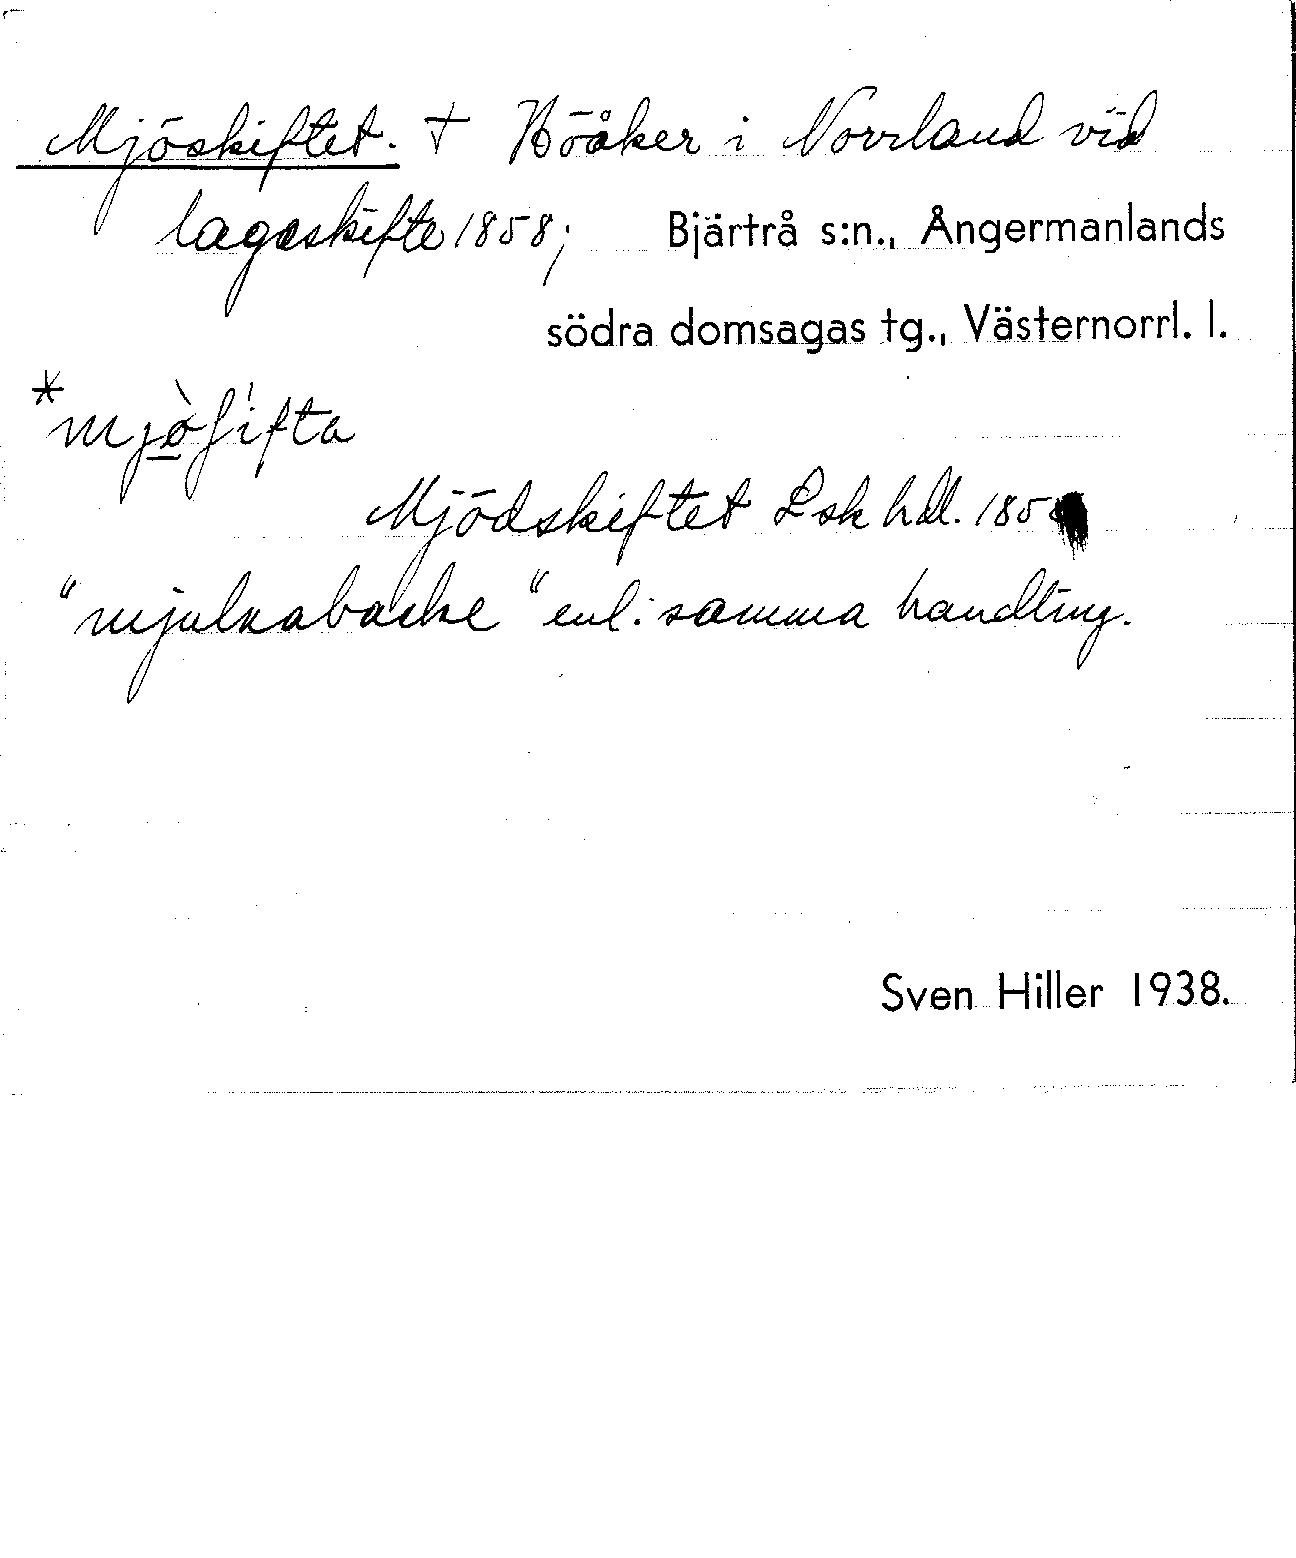 Mjöskiftet. † Böåker i Norrland vid
lagaskifte 1858; Bjärtrå s:n., Ångermanlands
södra domsagas tg., Västernorrl. l.
*mjò̱ʃifta
Mjödskiftet Lsk hdl.
"mjulnabacke" enl. samma handling.
Sven Hiller 1938.